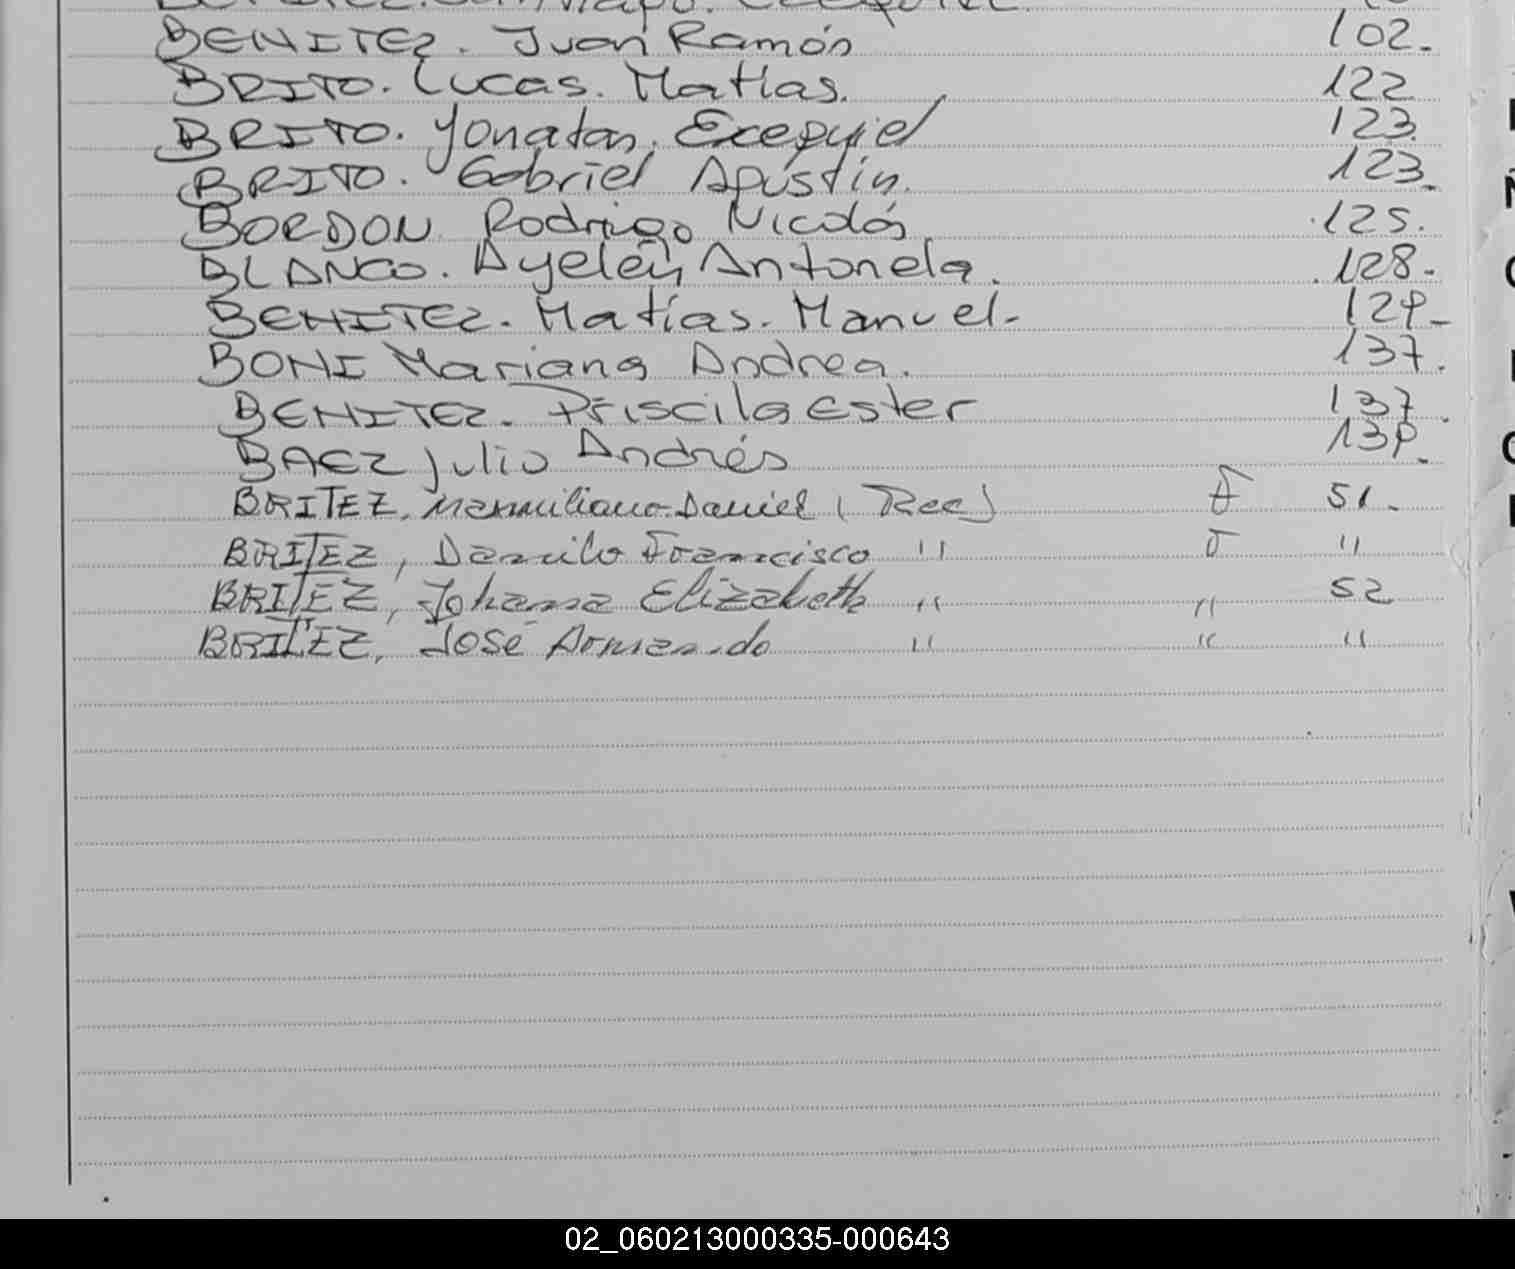 BENITEZ. Juan Ramón 102.
BRITO. Lucas. Matías. 122
BRITO. Yonatan. Exequiel 123.
BRITO. Gabriel Agustín. 123.
BORDON Rodrigo Nicolás. 125.
BLANCO. Ayelén Antonela. 128.
BENITEZ. Matías. Manuel. 129.
BONI Mariana Andrea. 137.
BENITEZ. Priscila Ester 137.
BAEZ Julio Andrés 139.
BRITEZ, Maximiliano Daniel (Rec) F 51.
BRITEZ, Danilo Francisco " F "
BRITEZ, Johana Elizabeth " " 52
BRITEZ, José Armando " " "
02_060213000335-000643